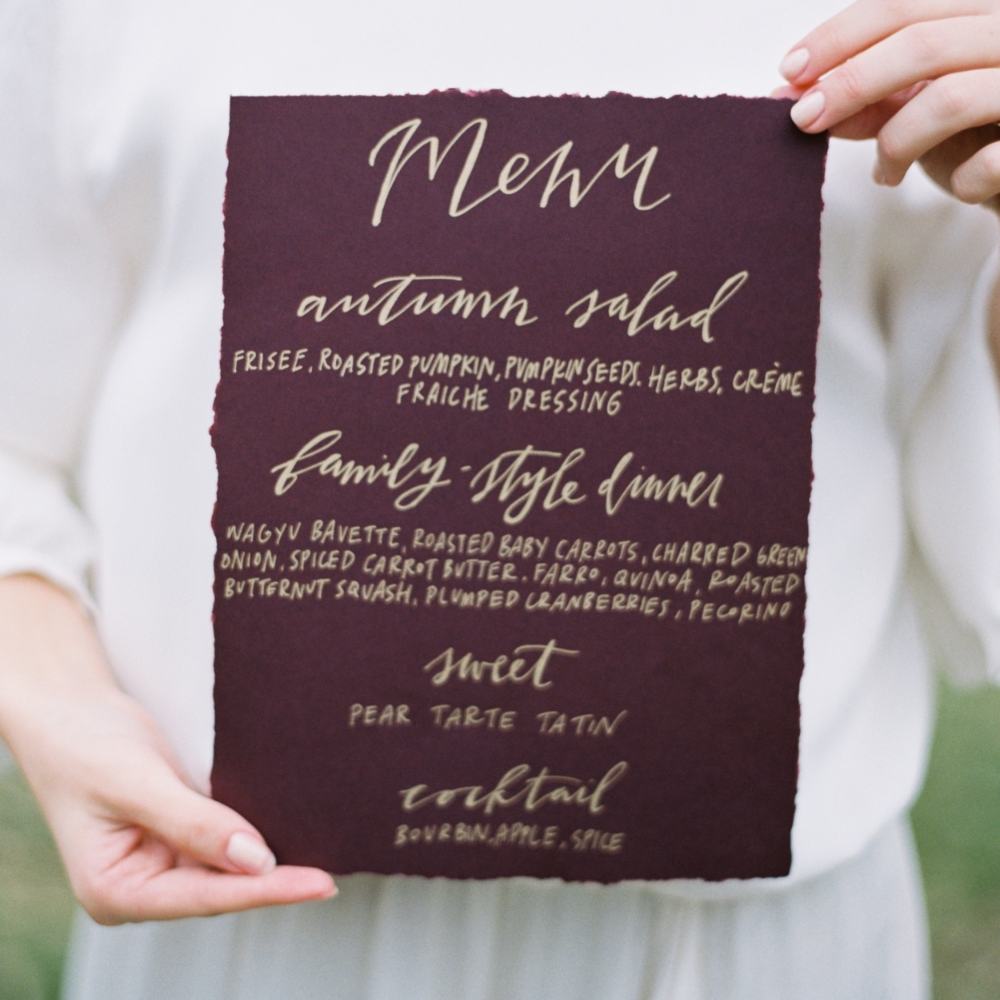 Menu
autumn salad
FRISEE, ROASTED PUMPKIN, PUMPKIN SEEDS, HERBS, CRÈME
FRAICHE DRESSING
family-style dinner
WAGYU BAVETTE, ROASTED BABY CARROTS, CHARRED GREEN
ONION, SPICED CARROT BUTTER. FARRO, QUINOA, ROASTED
BUTTERNUT SQUASH, PLUMPED CRANBERRIES, PECORINO
sweet
PEAR TARTE TATIN
cocktail
BOURBIN, APPLE, SPICE